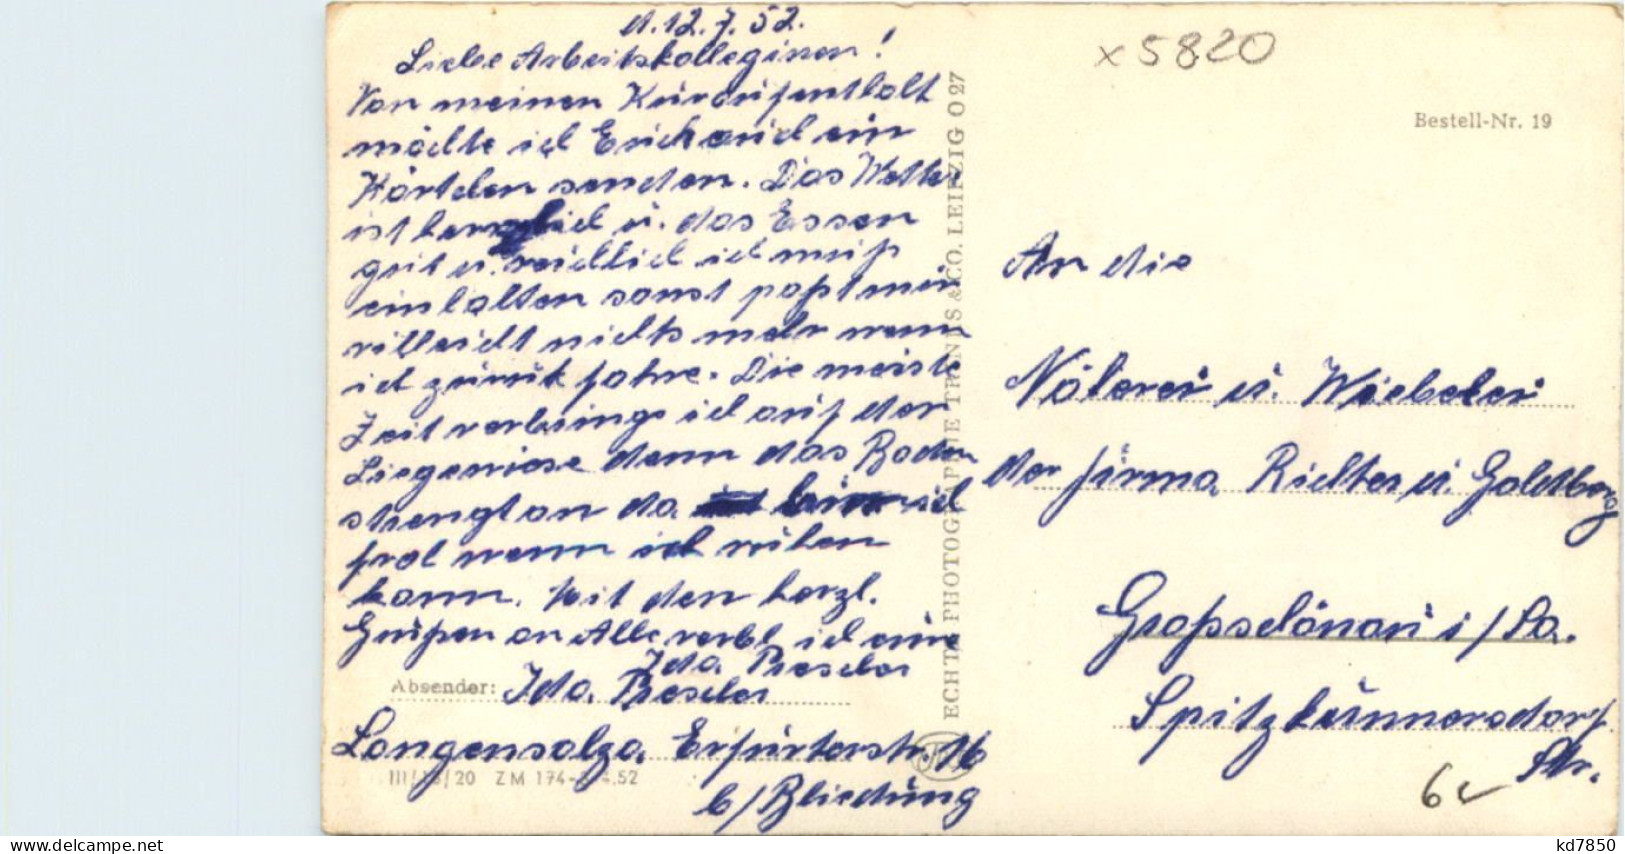 d. 12.7.52.
Liebe Arbeitskolleginen!
Von meinen Kuraufenthalt
möchte ich Euch auch ein
Kärtchen senden. Das Wetter
ist herrlich u. das Essen
gut u. reichlich ich muß
einhalten sonst paßt mir
villeicht nichts mehr wenn
ich zurück fahre. Die meiste
Zeit verbringe ich auf der
Liegewiese denn das Baden
strengt an da bin ich
froh wenn ich ruhen
kann. Mit den herzl.
Grüßen an Alle verbl. ich eure
Ida Prescher
Absender: Ida Prescher
Langensalza, Erfurterstr. 16
b/ Bliedung
III/18/20 ZM 174- 4.52
ECHTE PHOTOGRAPHIE TRINKS & CO. LEIPZIG O 27
x 5820
Bestell-Nr. 19
An die
Näherei u. Weberei
der Firma Richter u. Goldberg
Großschönau i/Sa.
Spitzkunnersdorf.
Str.
6
kd7850